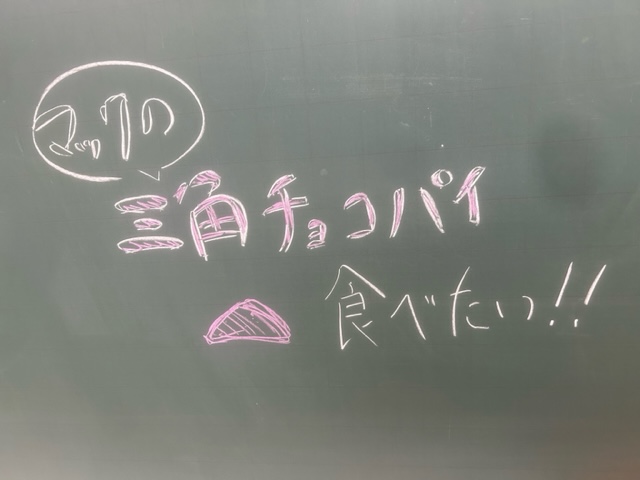 マックの
三角チョコパイ
食べたい!!